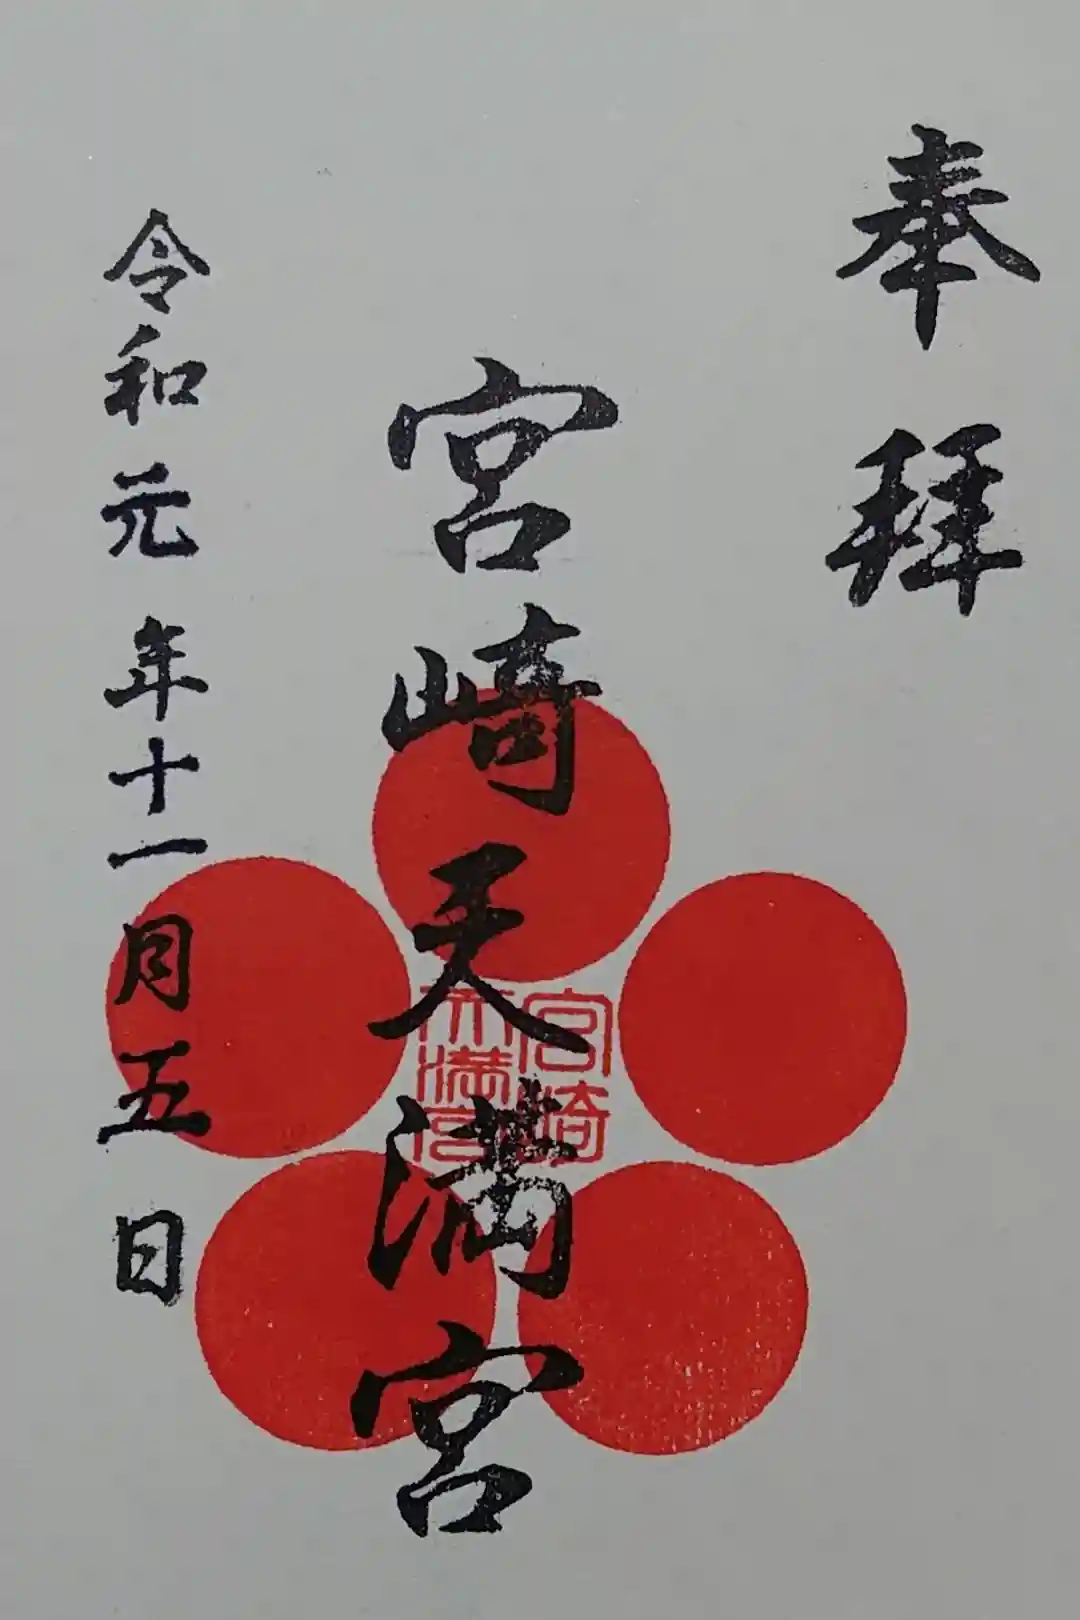 奉拜
宮崎天満宮
宮崎
天満宮
令和元年十一月五日